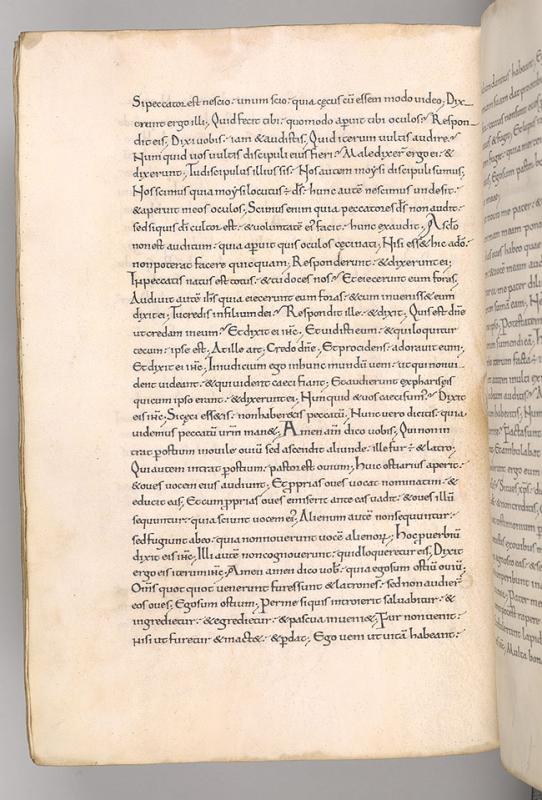 Si peccator est nescio; unum scio; quia cęcus cū essem modo video; Dix
erunt ergo illi; Quid fecit tibi; quomodo aperuit tibi oculos; Respon
dit eis; Dixi vobis; iam & audistis; Quid iterum vultis audire;
Numquid vos vultis discipuli eius fieri; Maledixer̄ ergo ei; &
dixerunt; Tu discipulus illius sis; Nos autem moysi discipuli sumus;
Nos scimus quia moysi locutus ÷ d̄s; hunc autē nescimus unde sit;
& aperuit meos oculos; Scimus enim quia peccatores d̄s non audit;
sed si quis d̄i cultor est; & voluntatē ei' facit; hunc exaudit; A sc̄lo
non est auditum; quia aperuit quis oculos cęci nati; Nisi ess& hic a dō
non poterat facere quicquam; Responderunt; & dixerunt ei;
In peccatis natus es totus; & tu doces nos; Et eiecerunt eum foras;
Audivit autē ih̄s quia eiecerunt eum foras; & cum inveniss& eum
dixit ei; Tu credis in filium dei; Respondit ille; & dixit; Quis est dn̄e
ut credam in eum; Et dixit ei ih̄c; Et vidisti eum; & qui loquitur
tecum; ipse est; At ille ait; Credo dn̄e; Et procidens; adoravit eum;
Et dixit ei ih̄c; In iudicium ego in hunc mundū veni; ut qui non vi
dent videant; & qui vident caeci fiant; Et audierunt ex pharisęis
qui cum ipso erant; & dixerunt ei; Numquid & nos caeci sum'; Dixit
eis ih̄c; Si cęci ess&is; non haberetis peccatū; Nunc vero dicitis; quia
videmus peccatū vr̄m man&; Amen am̄ dico vobis; Qui non in
trat ꝑ ostium in ovile oviū sed ascendit aliunde; ille fur ÷ & latro;
Qui autem intrat ꝑ ostium; pastor est ovium; Huic ostiarius aperit;
& oves vocem eius audiunt; Et ꝓprias oves vocat nominatim; &
educit eas; Et cum ꝓprias oves emiserit ante eas vadit; & oves illū
sequuntur; quia sciunt vocem ei'; Alienum autē non sequuntur;
sed fugiunt ab eo; quia non noverunt vocē alienoꝝ; Hoc ꝓverbiū
dixit eis ih̄c; Illi autē non cognoverunt; quid loqueretur eis; Dixit
ergo eis iterum ih̄c; Amen amen dico vob'; quia ego sum ostiū oviū;
Om̄s quotquot venerunt fures sunt & latrones; sed non audier̄
eos oves; Ego sum ostium; Per me si quis introierit salvabitur; &
ingredietur; & egredietur; & pascua inveni&; Fur non venit;
nisi ut furetur & mact&; & ꝑdat; Ego veni ut vitā habeant;